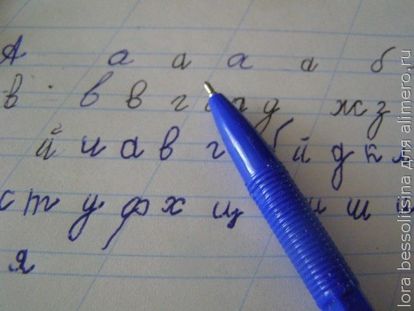 А а а а а б
в в в г а д ж з
й и а в г б й д к л
с т у ф х ц ш
я
lora bessolitsina для alimero.ru